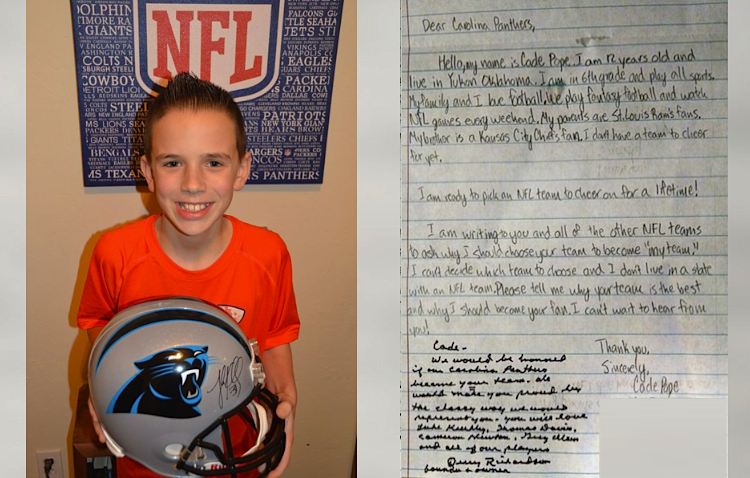 NFL
DOLPHIN
GIANTS
COLTS
COWBOY
STEELE
TITANS
MS TEXAN
FALCONS
JETS STE
EAGLES
CHIEFS
PACKE
PATRIOTS
BRONCOS
S PANTHERS
Dear Carolina Panthers,
Hello, my name is Cade Pope. I am 12 years old and
live in Yukon Oklahoma. I am in 6th grade and play all sports.
My family and I love football. We play fantasy football and watch
NFL games every weekend. My parents are St. Louis Rams fans.
My brother is a Kansas City Chiefs fan. I don't have a team to cheer
for yet.
I am ready to pick an NFL team to cheer on for a lifetime!
I am writing to you and all of the other NFL teams
to ask why I should choose your team to become "my team."
I can't decide which team to choose and I don't live in a state
with an NFL team. Please tell me why your team is the best
and why I should become your fan. I can't wait to hear from
you!
Thank you,
Sincerely,
Cade Pope
Cade -
We would be honored
if our Carolina Panthers
became your team. We
would make you proud by
the classy way we would
represent you. You will love
Luke Kuechly, Thomas Davis,
Cameron Newton, Greg Olsen
and all of our players
Jerry Richardson
founder & owner